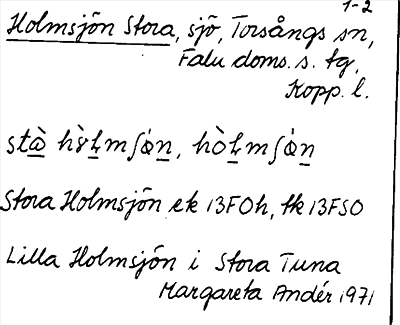 1-2
Holmsjön Stora, sjö, Torsångs sn,
Falu doms. s. tg,
Kopp. l.
Stora Holmsjön ek 13FOh, tk 13FSO
Lilla Holmsjön i Stora Tuna
Margareta Andér 1971